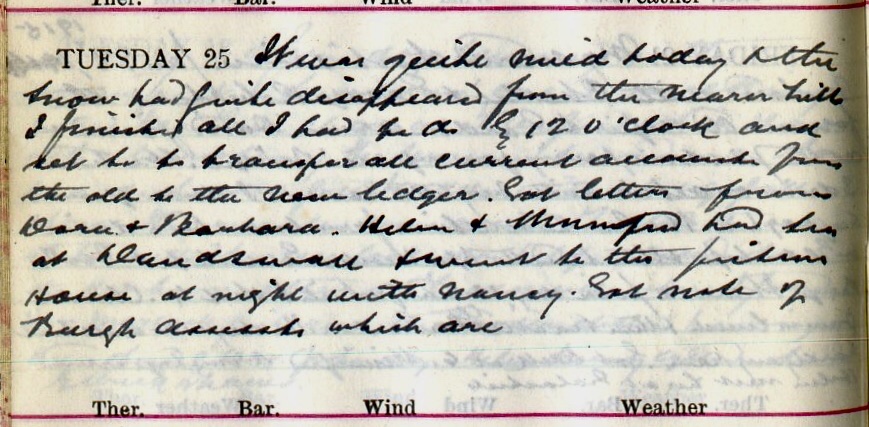 Ther. Bar. Wind Weather
TUESDAY 25 It was quite mild today & the
snow had quite disappeared from the nearer hills
I finished all I had to do by 12 o'clock and
set to to transfer all current accounts from
the old to the new ledger. Got letters from
Dora & Barbara. Helen & had tea
at & went to the picture
House at night with Nancy. Got note of
Burgh Assessts which are
Ther. Bar. Wind Weather